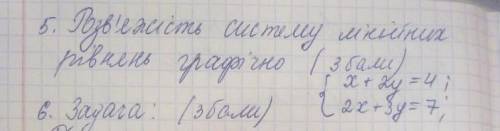 5. Розв'яжість систему лінійних
рівнень графічно (3 бали)
{ x + 2y = 4 ;
6. Задача: (3 бали) 2x + 3y = 7 ;